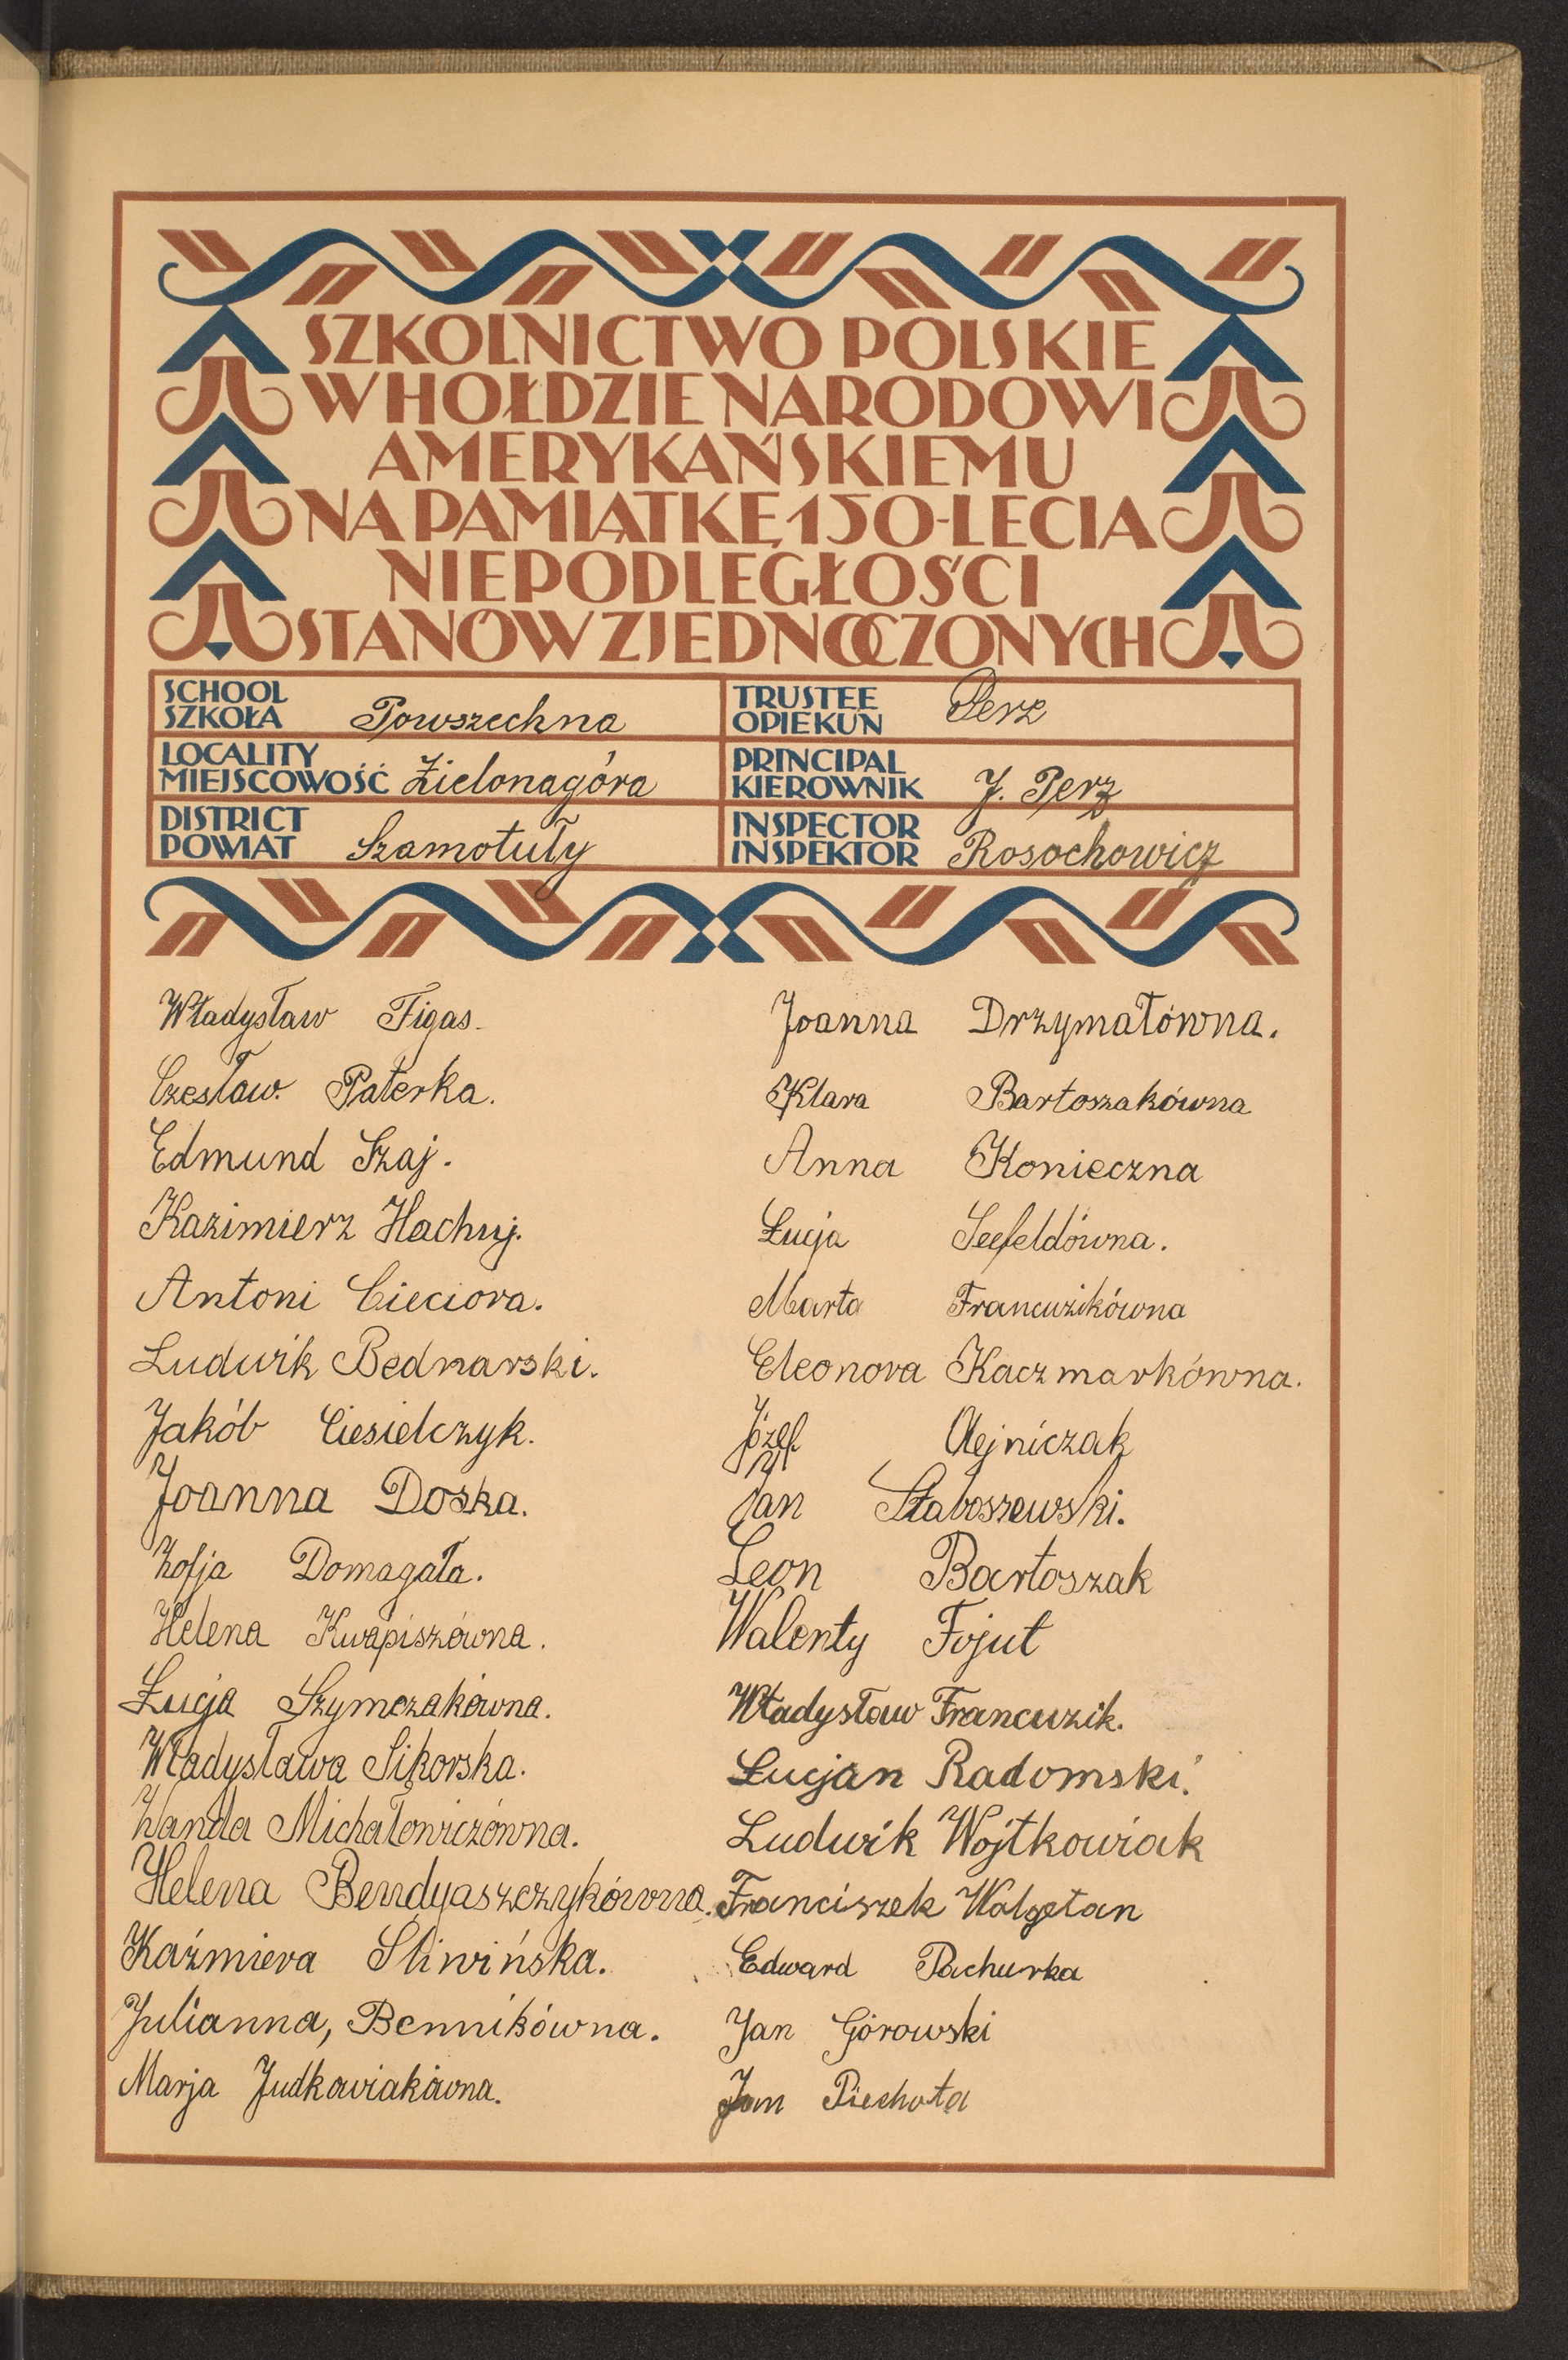 SZKOLNICTWO POLSKIE
W HOŁDZIE NARODOWI
AMERYKAŃSKIEMU
NA PAMIĄTKĘ 150-LECIA
NIEPODLEGŁOŚCI
STANÓW ZJEDNOCZONYCH
SCHOOL
SZKOŁA Powszechna
TRUSTEE
OPIEKUN Perz
LOCALITY
MIEJSCOWOŚĆ Zielonagóra
PRINCIPAL
KIEROWNIK J. Perz
DISTRICT
POWIAT Szamotuły
INSPECTOR
INSPEKTOR Rosochowicz
Władysław Figas.
Czesław. Paterka.
Edmund Szaj.
Kazimierz Hachuj.
Antoni Cieciora.
Ludwik Bednarski.
Jakób Ciesielczyk.
Joanna Doska.
Zofja Domagała.
Helena Kwapiszówna.
Łucja Szymczakówna.
Władysława Sikorska.
Wanda Michałowiczówna.
Helena Bendyaszczykówna.
Kaźmiera Śliwińska.
Julianna, Bennikówna.
Marja Judkowiakówna.
Joanna Drzymałówna.
Klara Bartoszakówna
Anna Konieczna
Łucja Seefeldówna.
Marta Francuzikówna
Eleonora Kaczmarkówna.
Józef Olejniczak
Jan Słaboszewski.
Leon Bartoszak
Walenty Fojut
Władysław Francuzik.
Łucjan Radomski.
Ludwik Wojtkowiak
Franciszek Walgetan
Edward Pachurka
Jan Górowski
Jan Piechota